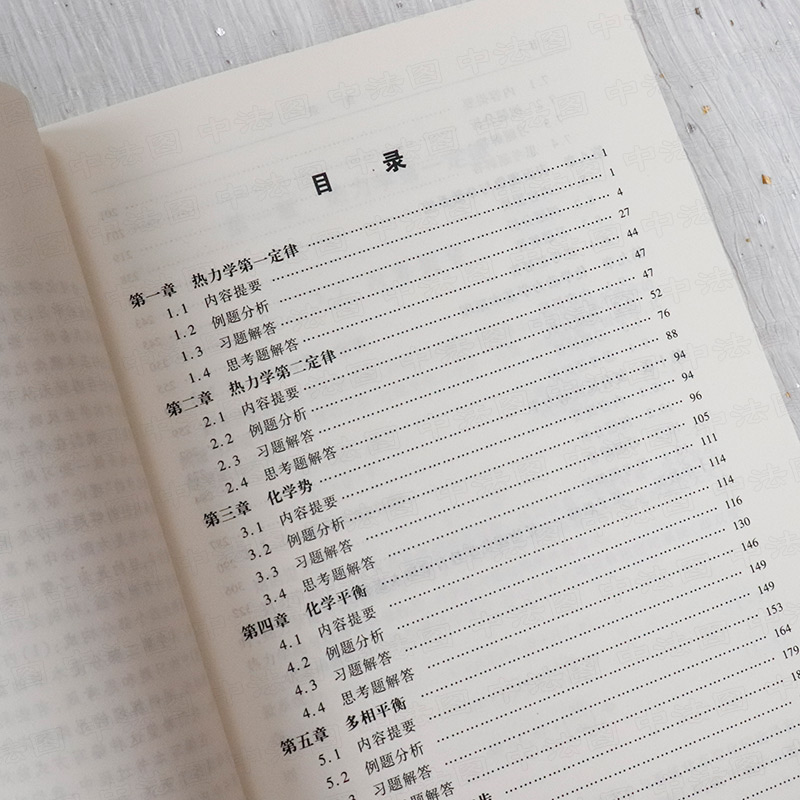 目 录
第一章 热力学第一定律 1
1.1 内容提要 1
1.2 例题分析 4
1.3 习题解答 27
1.4 思考题解答 44
第二章 热力学第二定律 47
2.1 内容提要 47
2.2 例题分析 52
2.3 习题解答 76
2.4 思考题解答 88
第三章 化学势 94
3.1 内容提要 94
3.2 例题分析 96
3.3 习题解答 105
3.4 思考题解答 111
第四章 化学平衡 114
4.1 内容提要 114
4.2 例题分析 116
4.3 习题解答 130
4.4 思考题解答 146
第五章 多相平衡 149
5.1 内容提要 149
5.2 例题分析 153
3 习题解答 164
思考题解答 179
中法图